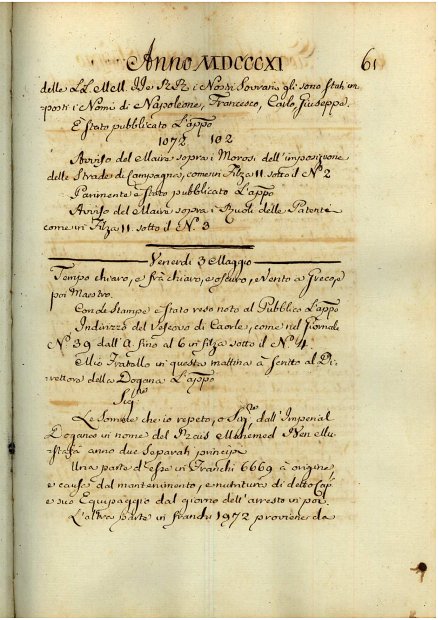 Anno MDCCCXI 61
delle LL. MM. II. e RR. i Nostri Sovrani gli sono stati im
posti i Nomi di Napoleone, Francesco, Carlo, Giuseppe.
È stato pubblicato L'appo
1072 102
Avviso del Maire sopra i Morosi dell'imposizione
delle Strade di Campagna, come in Filza 11 sotto il N.º 2
Parimente è stato pubblicato L'appo
Avviso del Maire sopra i Ruoli delle Patenti
come in Filza 11. sotto il N.º 3
Venerdi 3 Maggio
Tempo chiaro, e frà chiaro, e oscuro, e Vento a Greco, e
poi Maestro.
Con le Stampe è stato reso noto al Pubblico L'appo
Indirizzo del Vescovo di Caorle, come nel Giornale
N.º 39 dall' A. fino al 6 in filza sotto il N.º 4.
Mio Fratello in questa mattina à scritto al Di
rettore della Dogana L'appo
Sig.re
Le Somme che io repeto, o Sig.re dall' Imperial
Dogana in nome del Rais Mehemed Ven Mu
stafà anno due Separati principi
Una parte d'esse in Franchi 6669 à origine,
e causa dal mantenimento, e nutritura di detto Cap.
e suo Equipaggio dal giorno dell'arresto in poi.
L'altra parte in franchi 1972 proviene da